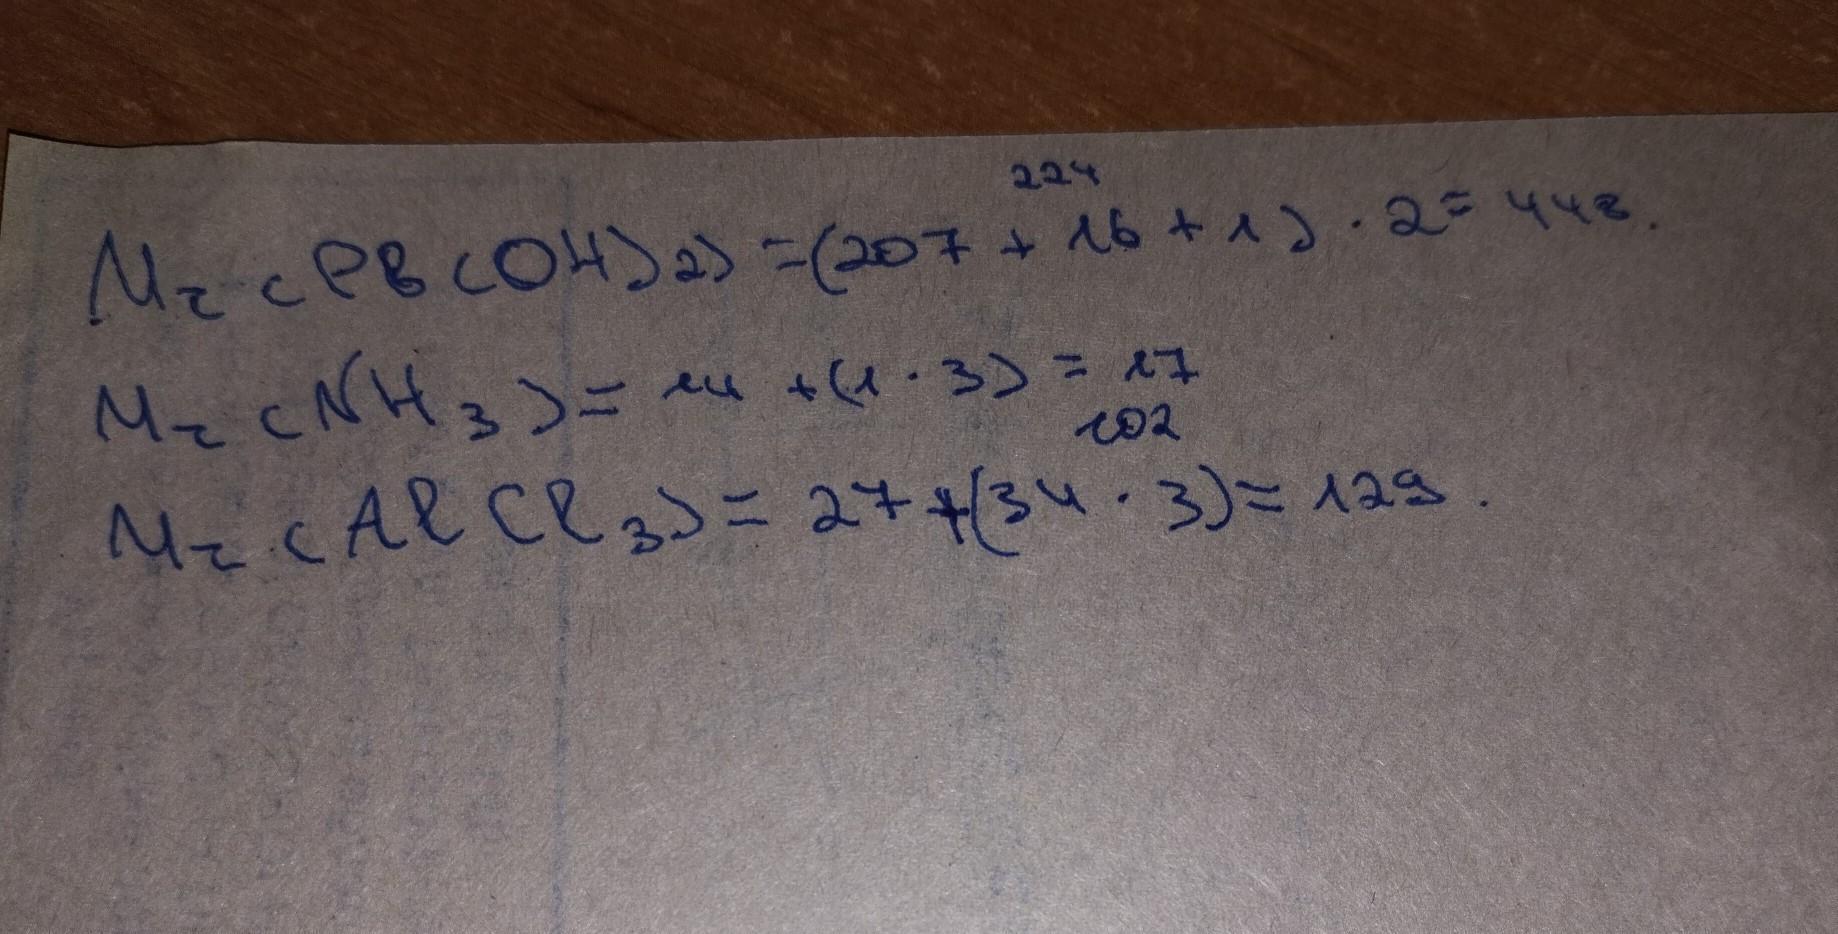 224
Mr (PB(OH)2) = (207 + 16 + 1) · 2 = 448.
Mr (NH3) = 14 + (1 · 3) = 17
102
Mr (AlCl3) = 27 + (34 · 3) = 129.